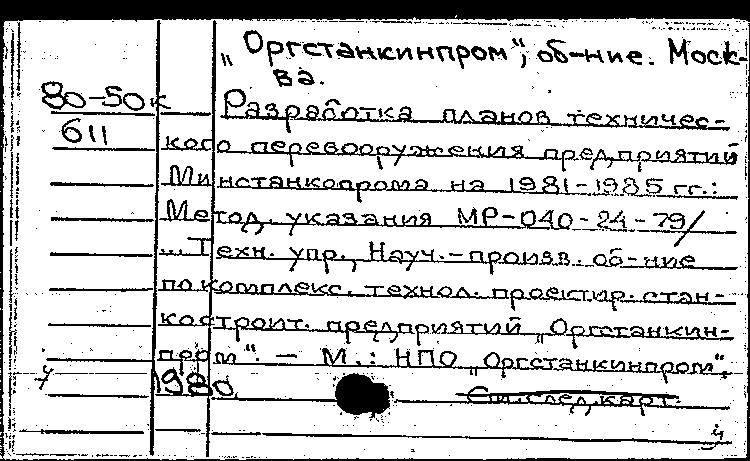 „Оргстанкинпром“, об-ние. Моск-
ва.
80-50к Разработка планов техничес-
611 кого перевооружения предприятий
Минстанкопрома на 1981-1985 гг.:
Метод. указания МР-040-24-79/
...Техн. упр., Науч.-произв. об-ние
по комплекс. технол. проектир. стан-
костроит. предприятий „Оргстанкин-
пром“. — М.: НПО „Оргстанкинпром“,
1980
См. след. карт.